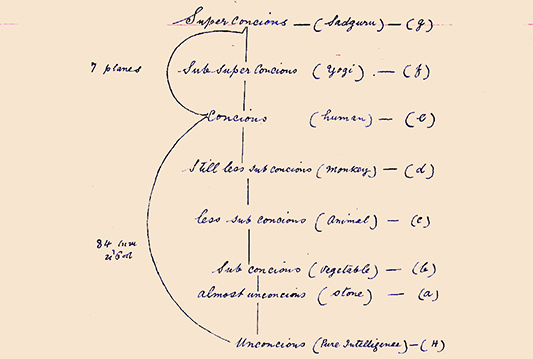 Super Concious — (Sadguru) — (g)
7 planes
Sub Super Concious (Yogi) — (f)
Concious (human) — (e)
Still less sub concious (monkey) — (d)
less sub concious (animal) — (c)
84
Sub concious (vegetable) — (b)
almost unconcious (stone) — (a)
Unconcious (Pure Intelligence) — (A)